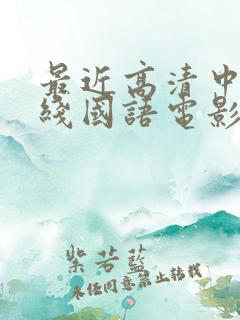 最近高清中
綫國語電影
紫若藍
未经同意禁止转载